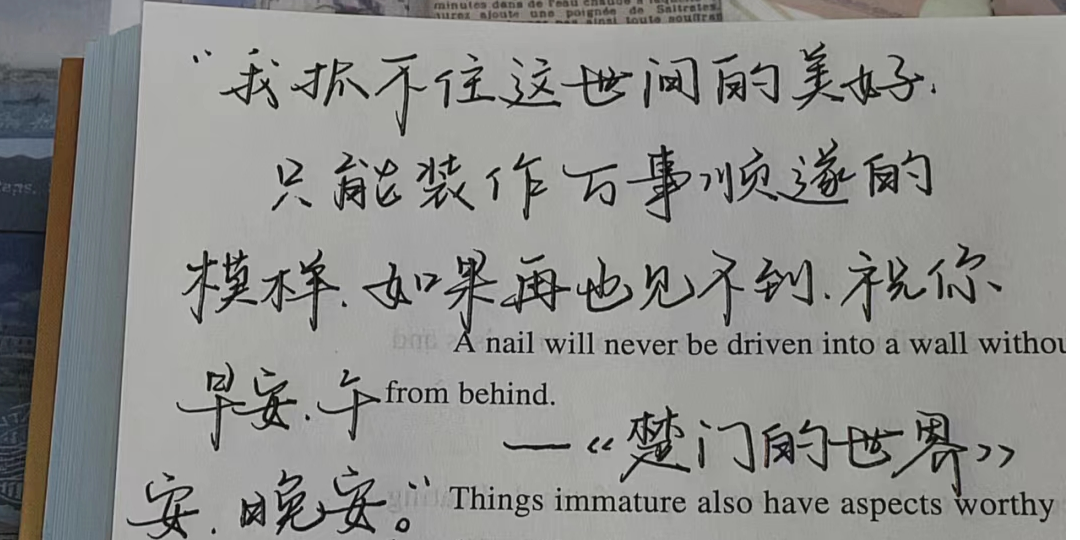 minutes dans de l'eau chaude
ajoute une poignée de Saltrates
toute souffran
“我抓不住这世间的美好.
只能装作万事顺遂的
模样.如果再也见不到.祝你
A nail will never be driven into a wall withou
早安.午
from behind.
—《楚门的世界》
安.晚安。”
Things immature also have aspects worthy